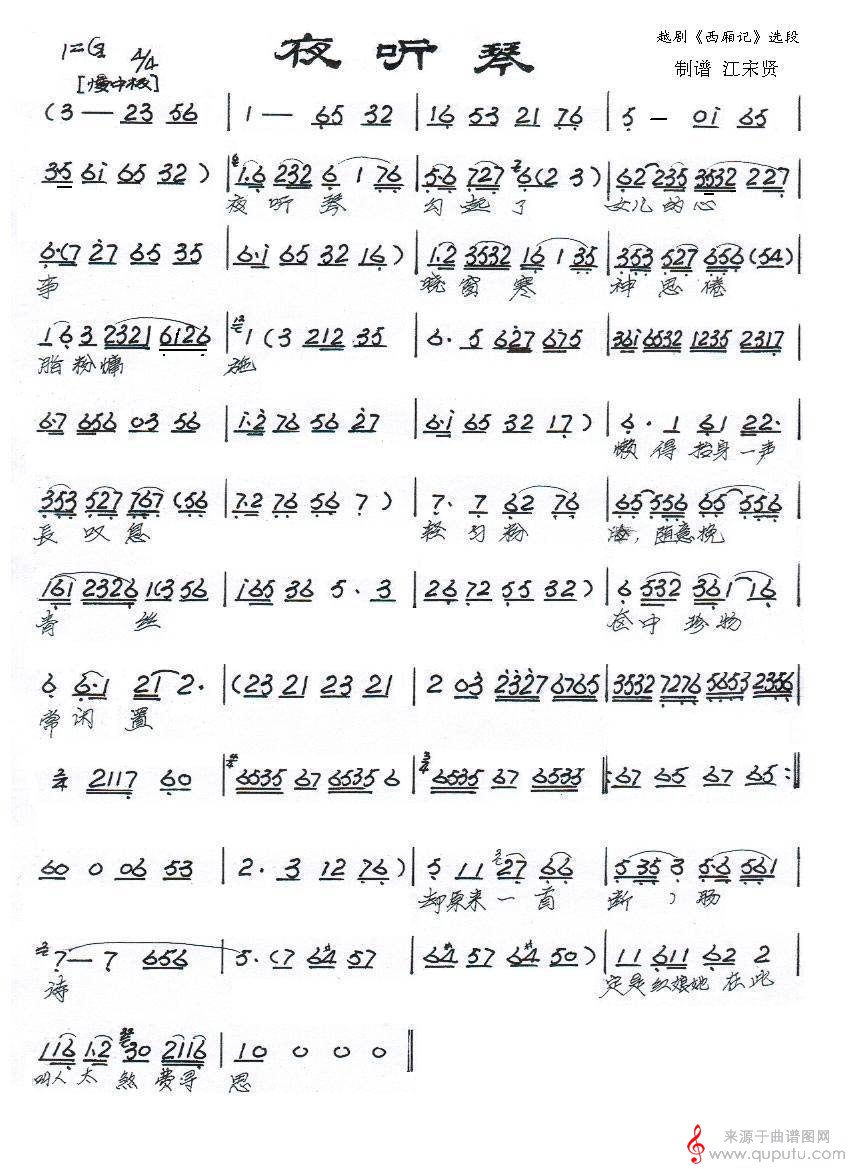 夜听琴
越剧《西厢记》选段
制谱 江宋贤
1=G 4/4
[慢中板]
(3 — 23 56 | 1 — 65 32 | 16 53 21 76 | 5 — 0i 65 |
35 6i 65 32 ) | 1.6 232 6 1 76 | 5.6 727 6(2 3) | 62 235 3532 227 |
夜听琴 勾起了 女儿的心
6.(7 27 65 35 | 6.i 65 32 16 ) | 1.2 3532 16 1 35 | 353 527 656 (54) |
事 晓窗寒 神思倦
1 6 3 2321 6126 | 1 (3 212 35 | 6. 5 627 675 | 36i 6532 1235 2317 |
脂粉慵 施
6.7 656 03 56 | i.2 76 56 27 | 6.i 65 32 17 ) | 6. 1 61 22. |
懒得抬身一声
353 527 767 (56 | 7.2 76 56 7 ) | 7. 7 62 76 | 65 556 65 556 |
長叹息 轻匀粉 随意挽
161 2326 1(3 56 | i65 36 5. 3 | 26 72 55 32 ) | 6 532 361 116 |
青丝 奁中珍物
6 6.1 21 2. | (23 21 23 21 | 2 03 2327 6765 | 3532 7276 5653 2356 |
常闲置
2/4 2117 60 | 6535 67 6535 6 | 3/4 6535 67 6535 |: 67 65 67 65 :||
60 0 06 53 | 2. 3 12 76 ) | 5 11 27 66 | 5 35 3 5.6 561 |
却原来一首 断〃肠
7 — 7 656 | 5.(7 6#4 57 | 6#4 57 6#4 50 ) | 11 611 62 2 |
诗 定是红娘她在此
116 1.2 30 2116 | 10 0 0 0 ||
叫人太煞费寻思
来源于曲谱图网
www.quputu.com